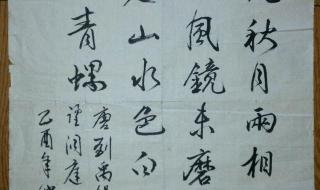 秋月兩相
風鏡未磨
山水色白
青螺
唐劉禹
望洞庭
乙酉年